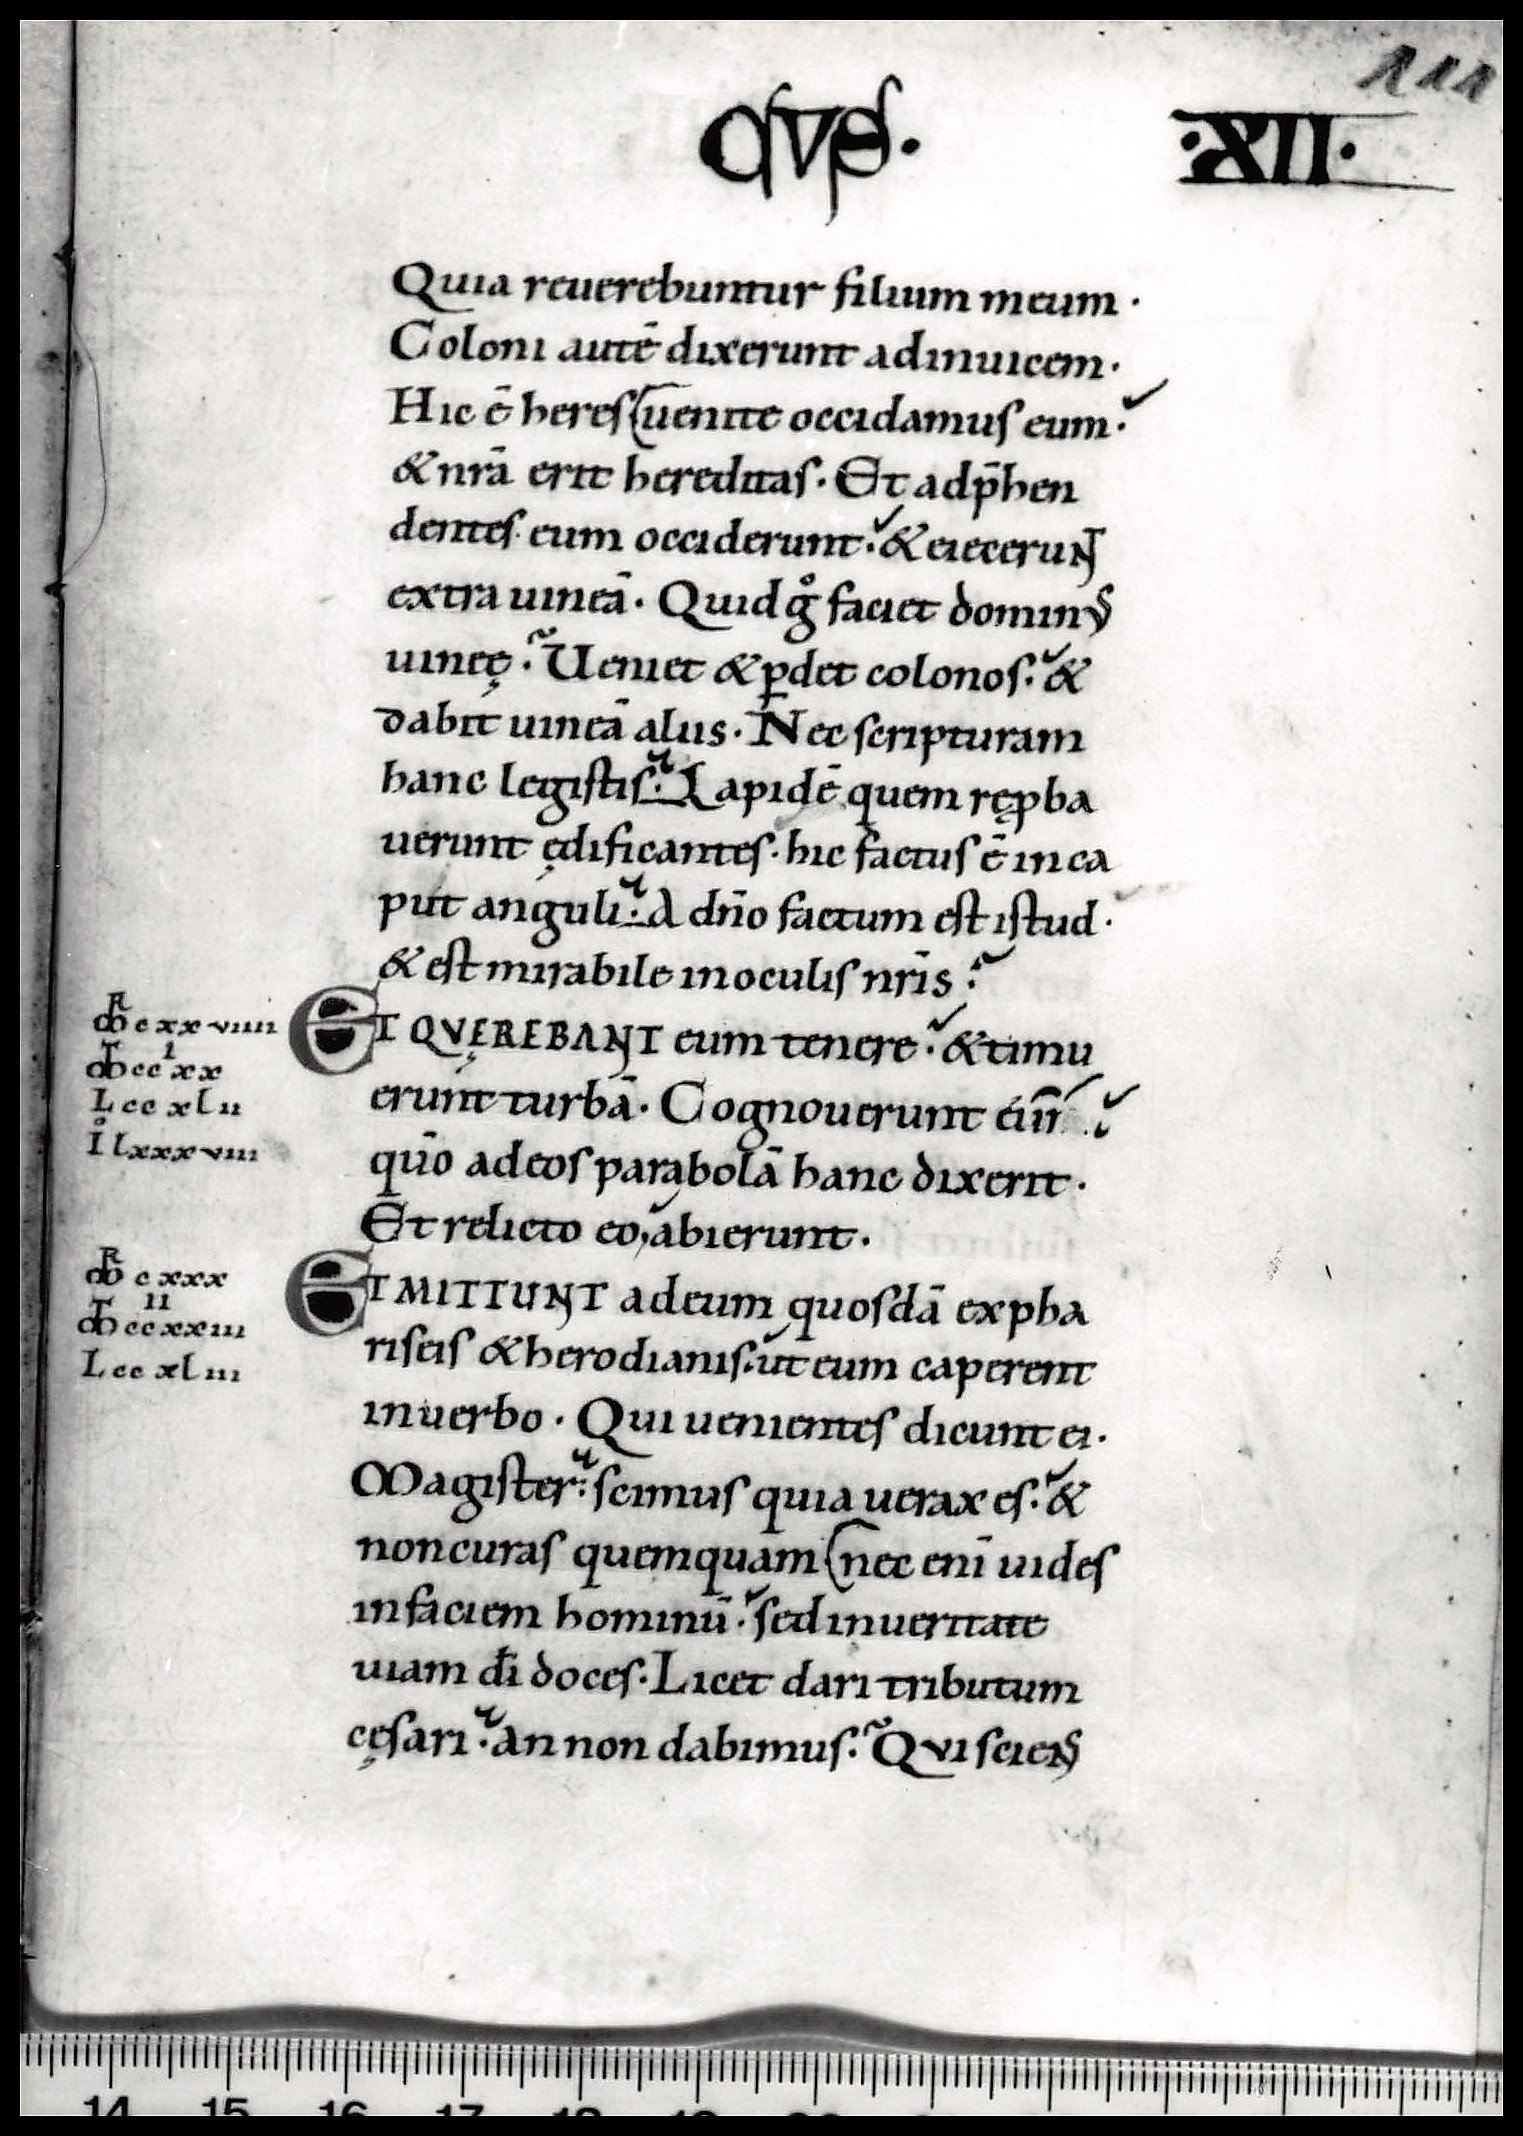 111
CVS·
·XII·
Quia reuerebuntur filium meum·
Coloni autē dixerunt adinuicem·
Hic ē heres uenite occidamus eum·
& nrā erit hereditas· Et adp̄hen
dentes eum occiderunt· & eiecerunt
extra uineā· Quid gͦ faciet dominus
uineę· Ueniet & ꝑdet colonos· &
dabit uineā aliis· Nec scripturam
hanc legistis· Lapidē quem ręꝓba
uerunt ędificantes· hic factus ē in ca
put anguli· A dn̄o factum est istud·
& est mirabile in oculis nr̄is·
R
M cxxviiii
ET QVĘREBANT eum tenere· & timu
T I
M ccxx
L ccxlii
erunt turbā· Cognouerunt eni̅
I lxxxviii
quō ad eos parabolā hanc dixerit·
Et relicto eo, abierunt·
R
M cxxx
ET MITTUNT ad eum quosdā ex pha
T II
M ccxxiii
riseis & herodianis· ut eum caperent
L ccxliii
in uerbo· Qui uenientes dicunt ei·
Magister· scimus quia uerax es· &
non curas quemquam nec enī uides
in faciem hominū· sed in ueritate
uiam dī doces· Licet dari tributum
cęsari· an non dabimus· Qui sciens
14 15 16 17 18 19 20